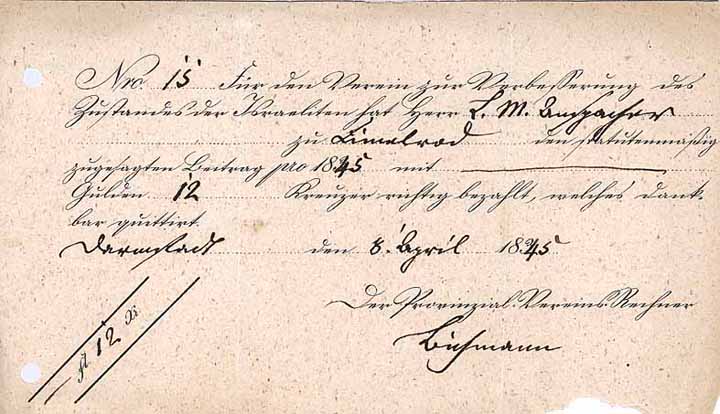 Nro. 15 Für den Verein zur Verbesserung des
Zustandes der Israeliten hat Herr L. M. Anspacher
zu den statutenmäßig
zugesagten Beitrag pro 1845 mit
Gulden 12 Kreuzer richtig bezahlt, welches dank-
bar quittirt.
Darmstadt den 8. April 1845
Der Provinzial-Vereins-Rechner
fl 12 Xr